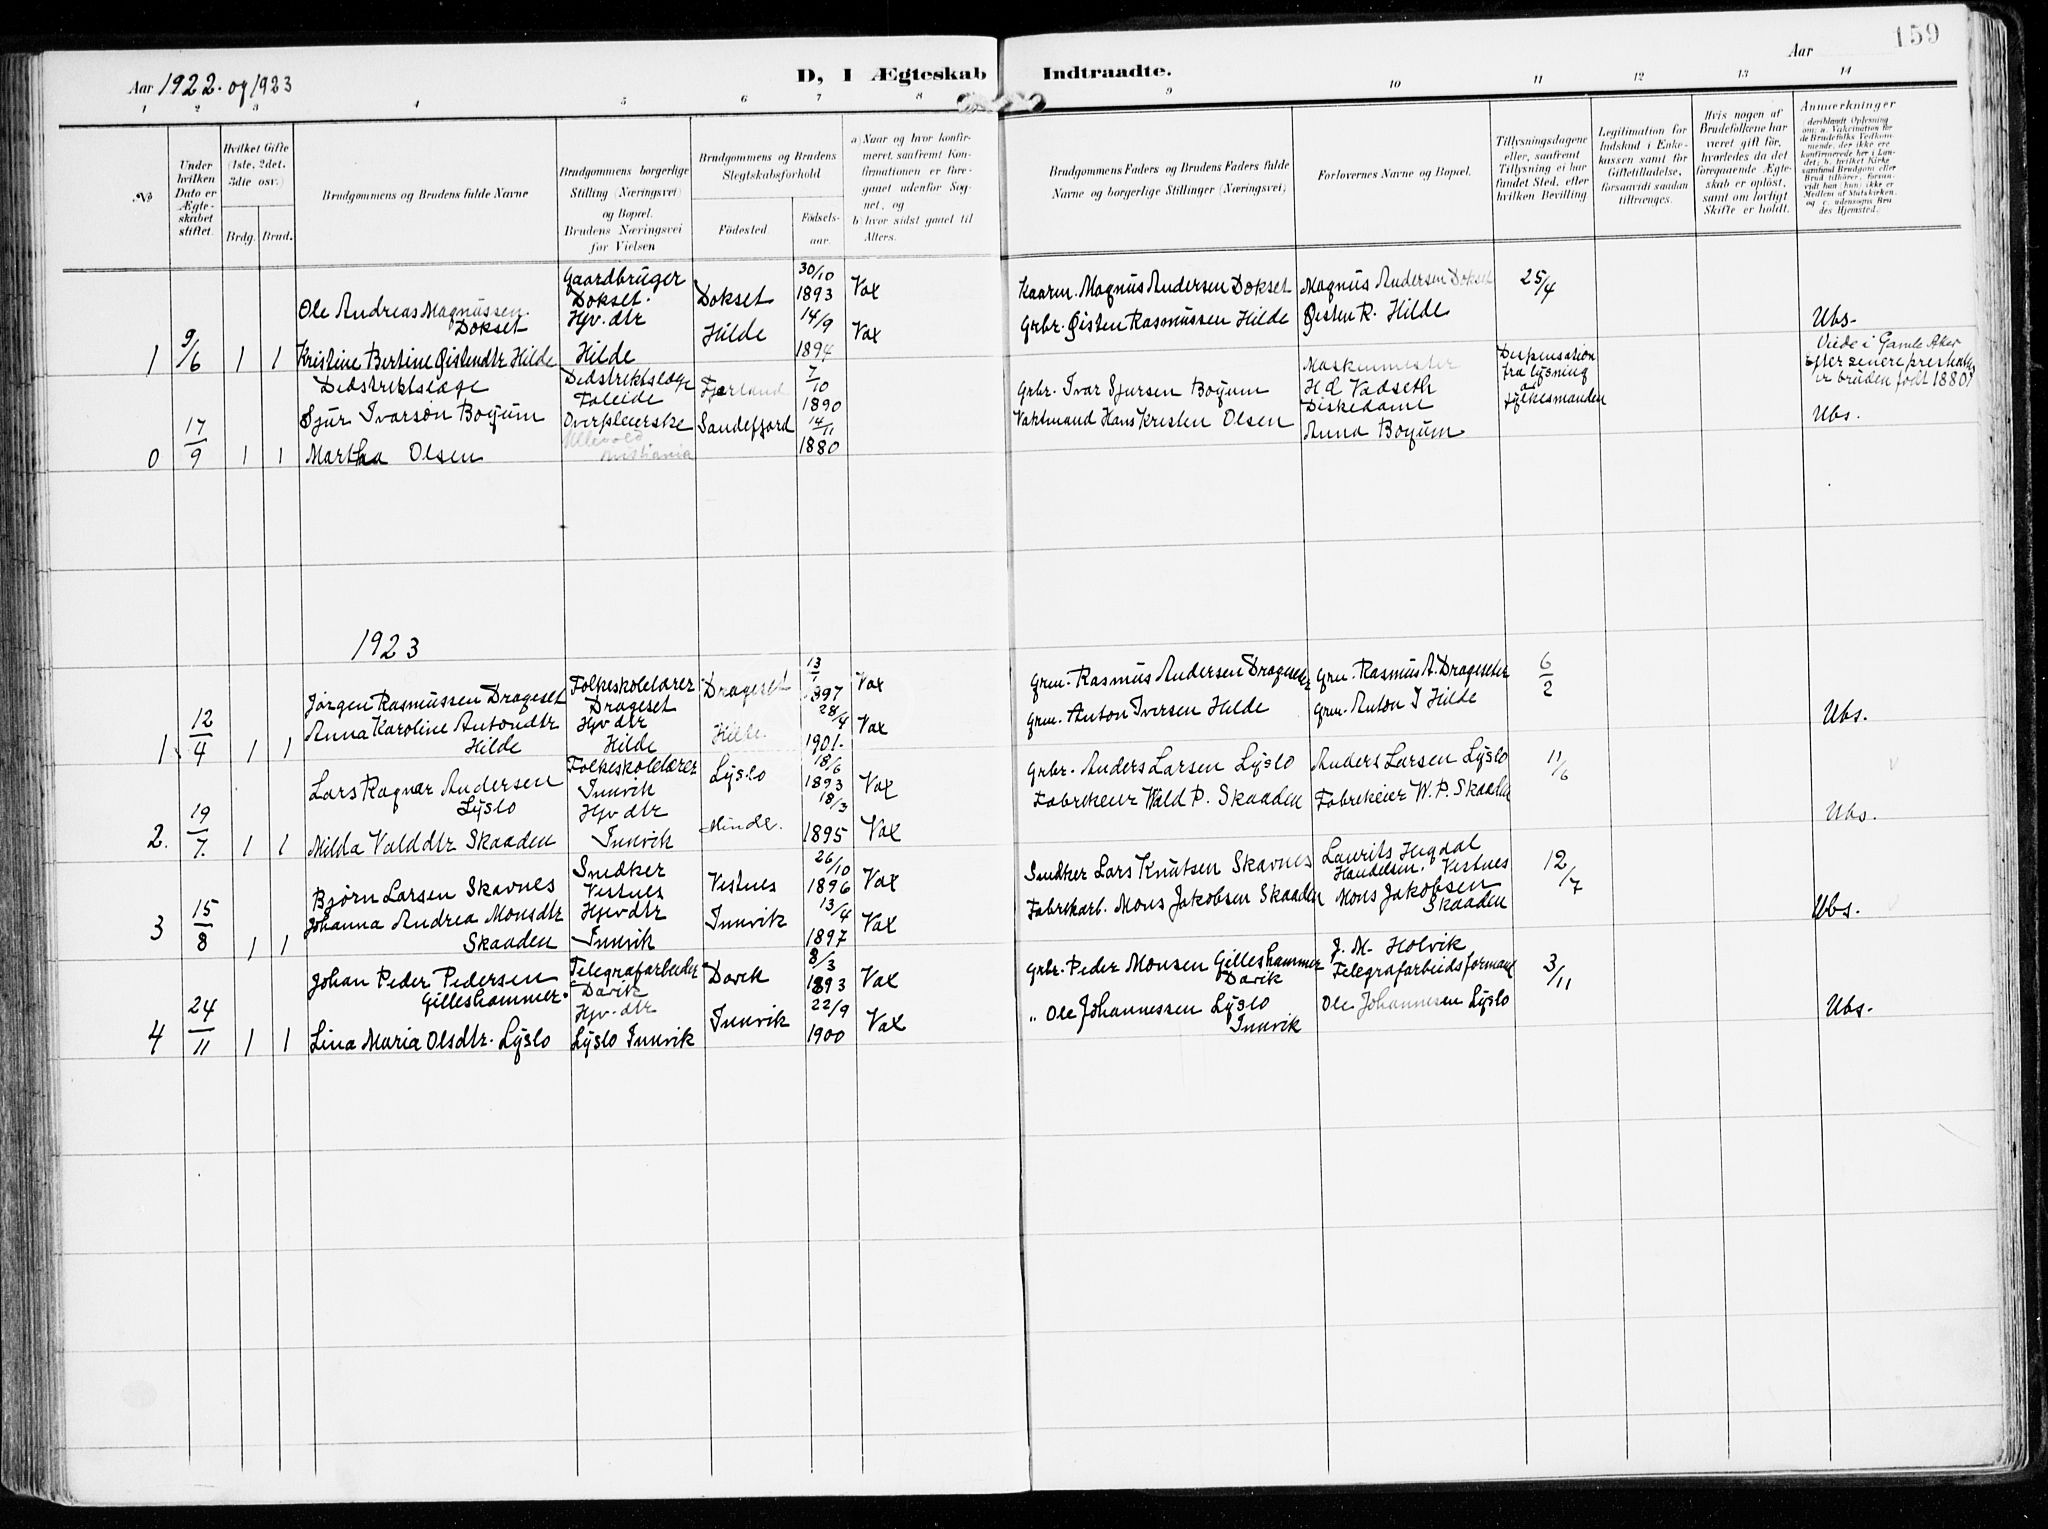 159
Aar 1922. og 1923
D, I Ægteskab Indtraadte.
Aar
1 2 3 4 5 6 7 8 9 10 11 12 13 14
No
Under hvilken Dato er Ægteskabet stiftet.
Hvilket Gifte (1ste, 2det, 3die osv.)
Brdg. Brud.
Brudgommens og Brudens fulde Navne
Brudgommens borgerlige Stilling (Næringsvei) og Bopæl. Brudens Næringsvei før Vielsen
Brudgommens og Brudens Slegtskabsforhold
Födested. Födselsaar.
a) Naar og hvor konfirmeret, saafremt Konfirmationen er foregaaet udenfor Sognet, og
b) hvor sidst gaaet til Alters.
Brudgommens Faders og Brudens Faders fulde Navne og borgerlige Stillinger (Næringsvei)
Forlovernes Navne og Bopæl.
Tillysningsdagene eller, saafremt Tillysning ei har fundet Sted, efter hvilken Bevilling
Legitimation for Indskud i Enkekassen samt for Giftetilladelse, forsaavidt saadan tiltrænges.
Hvis nogen af Brudefolkene har været gift før, hvorledes da det foregaaende Ægteskab er opløst, samt om lovligt Skifte er holdt.
Anmerkninger
deriblandt Oplysning om: a. Vakcination for de Brudefolks Vedkommende, der ikke ere konfirmerede her i Landet; b. hvilket Kirkesamfund Brudgom eller Brud tilhører, forsaavidt han (hun) ikke er Medlem af Statskirken, og c. udensogns Brudes Hjemsted.
1 9/6 1 1
Ole Andreas Magnussen Dokset
Gaardbruger Dokset.
Dokset 30/10 1893 Vax
Kaarm. Magnus Andersen Dokset
Magnus Andersen Dokset
25/4
Kristine Bertine Øistendtr Hilde
Hjv. dtr Hilde
Hilde 14/9 1894 Vax
Grbr. Øisten Rasmussen Hilde
Øisten R. Hilde
Ubs.
0 17/9 1 1
Distriktslæge
Sjur Ivarson Boyum
Distriktslæge Faleide
Fjærland 7/10 1890
Grbr. Ivar Sjursen Boyum
Maskinmester H. d. Vadseth
Dispensation fra lysning
Viede i Gamle Aker
Efter senere presteattest er bruden født 1880!
Martha Olsen
Overpleierske Ullevold
Sandefjord 14/11 1880
Vaktmand Hans Kristen Olsen
Diskedame Anna Boyum
Ubs.
1923
1. 12/4 1 1
Jørgen Rasmussen Drageset
Folkeskolelærer Drageset
Drageset 13/1 1897 Vax
Grm. Rasmus Andersen Drageseter
Grm. Rasmus A. Drageseter
6/2
Anna Karoline Antondtr Hilde
Hjv dtr Hilde
Hilde. 28/4 1901. Vax
Grm. Anton Iversen Hilde
Grm. Anton I Hilde
Ubs.
2. 19/7. 1 1
Lars Ragnar Andersen Lyslo
Folkeskolelærer Innvik
Lyslo 18/6 1893 Vax
Grbr. Anders Larsen Lyslo
Anders Larsen Lyslo
11/6
Milda Valddtr Skaaden
Hjv dtr Innvik
Minde. 18/3 1895 Vax
Fabrikeier Wald P. Skaaden
Fabrikeier W. P. Skaaden
Ubs.
3 15/8 1 1
Bjørn Larsen Skavnes
Snedker Vestnes
Vestnes 26/10 1896 Vax
Snedker Lars Knutsen Skavnes
Laurits Hegdal Handelsm. Vestnes
12/7
Johanna Andrea Monsdtr Skaaden
Hjv dtr Innvik
Innvik 13/4 1897 Vax
Fabrikarb. Mons Jakobsen Skaaden
Mons Jakobsen Skaaden
Ubs.
4 24/11 1 1
Johan Peder Pedersen Gilleshammer.
Telegrafarbeider Davik
Davik 8/3 1893 Vax
Grbr. Peder Monsen Gilleshammer Davik
J. M. Holvik Telegrafarbeidsformand
3/11
Lina Maria Olsdtr. Lyslo
Hjv. dtr Lyslo Innvik
Innvik 22/9 1900 Vax
" Ole Johannessen Lyslo Innvik
Ole Johannesen Lyslo
Ubs.